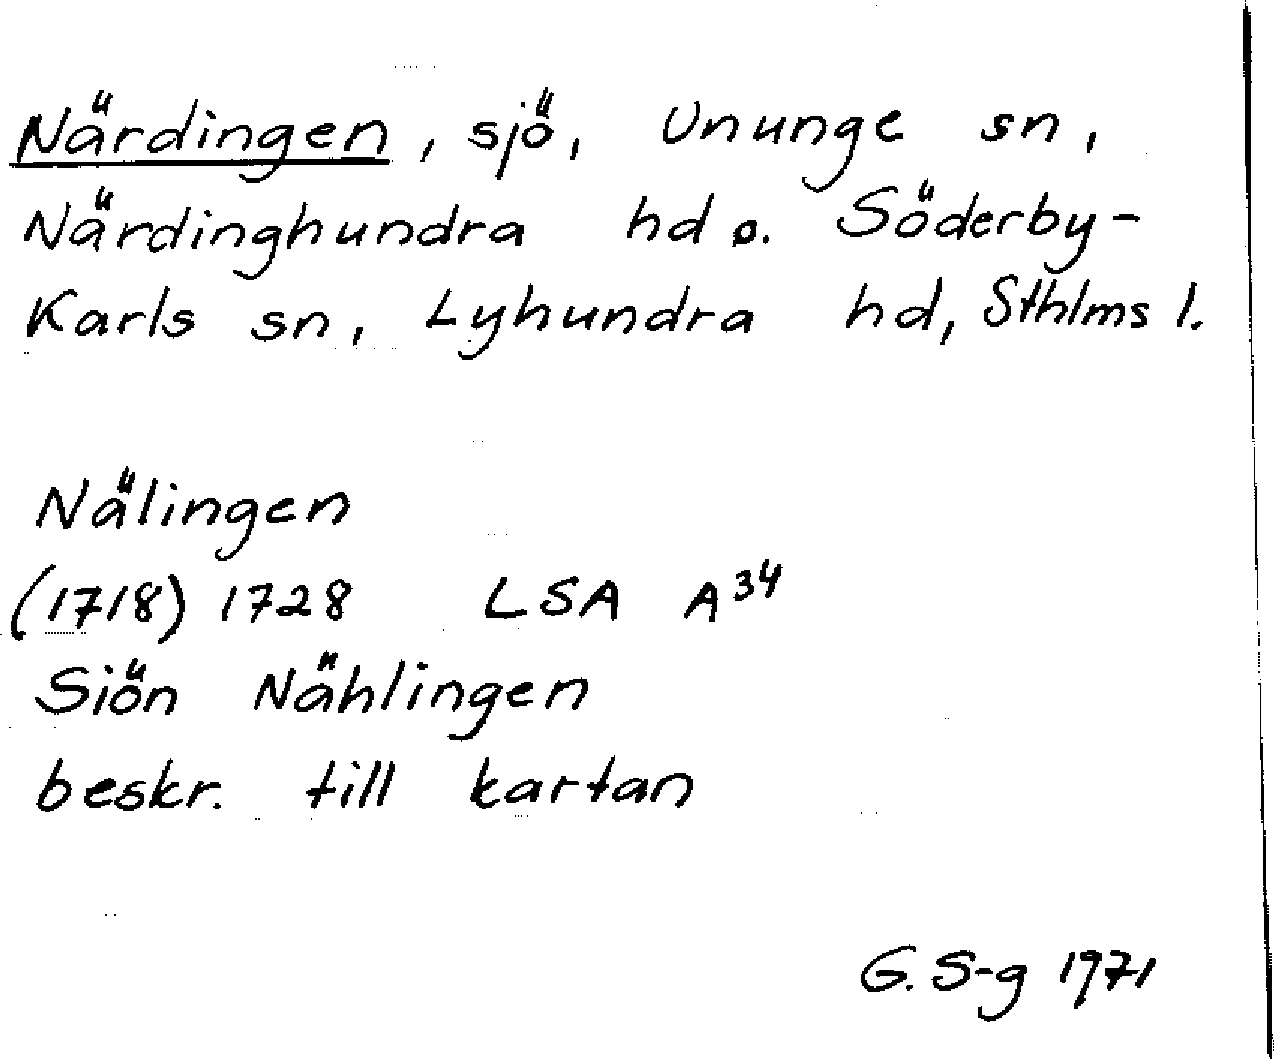 Närdingen, sjö, Ununge sn,
Närdinghundra hd o. Söderby-
Karls sn, Lyhundra hd, Sthlms l.
Nälingen
(1718) 1728 LSA A³⁴
Siön Nählingen
beskr. till kartan
G. S-g 1971